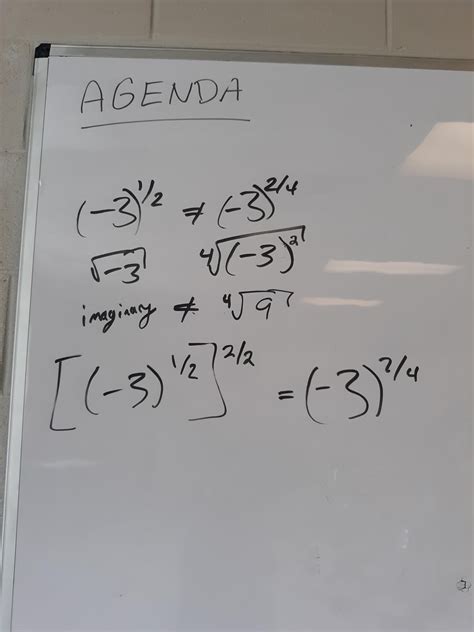 AGENDA
(-3)^1/2 ≠ (-3)^2/4
√-3 ⁴√(-3)^2
imaginary ≠ ⁴√9
[(-3)^1/2]^2/2 = (-3)^2/4